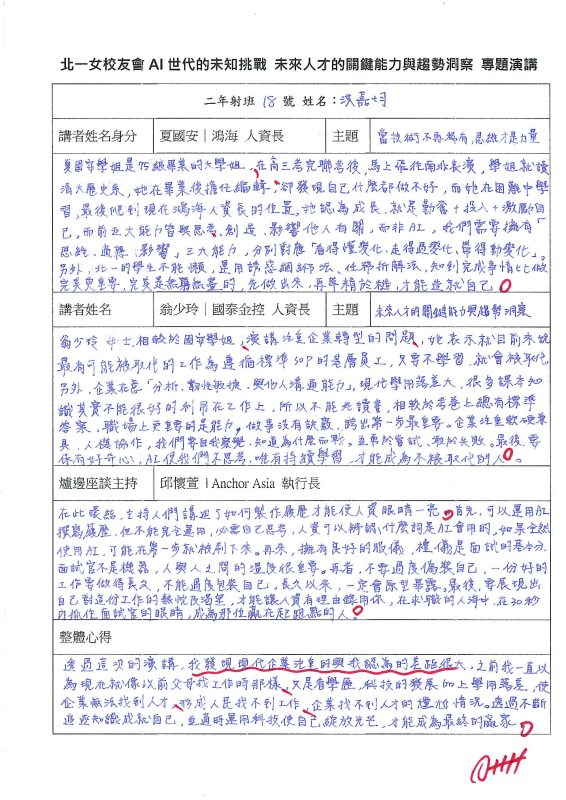 北一女校友會 AI 世代的未知挑戰 未來人才的關鍵能力與趨勢洞察 專題演講
二年射班 18 號 姓名：洪嘉均
講者姓名身分 夏國安｜鴻海 人資長 主題 當技術不再稀有，思維才是力量
夏國安學姐是75級畢業的大學姐，在高三考完聯考後，馬上飛往南非表演，學姐就讀
清大歷史系，她在畢業後擔任編輯，卻發現自己什麼都做不好，而她在困難中學
習，最後爬到現在鴻海人資長的位置。她認為成長，就是勤奮+投入+激勵自
己，而前三大能力皆與思考、創造、影響他人有關，而非AI，我們需要擁有「
思維、適應、影響」三大能力，分別對應「看得懂變化、走得過變化、帶得動變化」。
另外，北一的學生不能懶，運用誘惑綑綁法、任務拆解法，知到完成事情比做
完美更重要，完美是無窮無盡的，先做出來，再준精於糙，才能造就自己。
講者姓名 翁少玲｜國泰金控 人資長 主題 未來人才的關鍵能力與趨勢洞察
翁少玲女士，相較於國安學姐，演講注重企業轉型的問題，她表示就目前來說
最有可能被取代的工作為遵循標準SOP的基層員工，只要不學習，就會被取代。
另外，企業在意「分析、韌性敏捷、與他人溝通能力」，現代學用落差大，很多課本知
識其實不能很好的利用在工作上，所以不能光讀書，相較於考卷上總有標準
答案，職場上更重要的是能力。做事沒有缺觀，跨出第一步最重要。企業注重軟硬兼
具，人機協作，我們要自我察覺，知道為什麼而戰。並勇於嘗試、敢於失敗。最後，要
保有好奇心，AI使我們不思考，唯有持續學習，才能成為不被取代的人。
爐邊座談主持 邱懷萱｜Anchor Asia 執行長
在此環節，主持人們講述了如何製作履歷才能使人資眼睛一亮。首先，可以運用AI
撰寫履歷，但不能完全運用，必需自己思考，人資可以辨認什麼詞是AI會用的，如果全然
使用AI，可能在第一步就被刷下來。再來，擁有良好的服儀，禮儀是面試的基本分，
面試官不是機器，人與人之間的溫度很重要。再者，不要過度偽裝自己，一份好的
工作要做得長久，不能過度包裝自己，長久以來，一定會原型畢露。最後，要展現出
自己對這份工作的熱忱及渴望，才能讓人資有理由錄用你，在求職的人海中，在30秒
內抓住面試官的眼睛，成為那位贏在起跑點的人。
整體心得
透過這次的演講，我發現現代企業注重的與我認為的差距很大，之前我一直以
為現在就像以前父母找工作時那樣，只是看學歷，科技的發展加上學用落差，使
企業無法找到人才，形成人民找不到工作，企業找不到人才的尷尬情況。透過不斷
追逐知識成就自己，並適時運用科技使自己綻放光芒，才能成為最終的贏家。